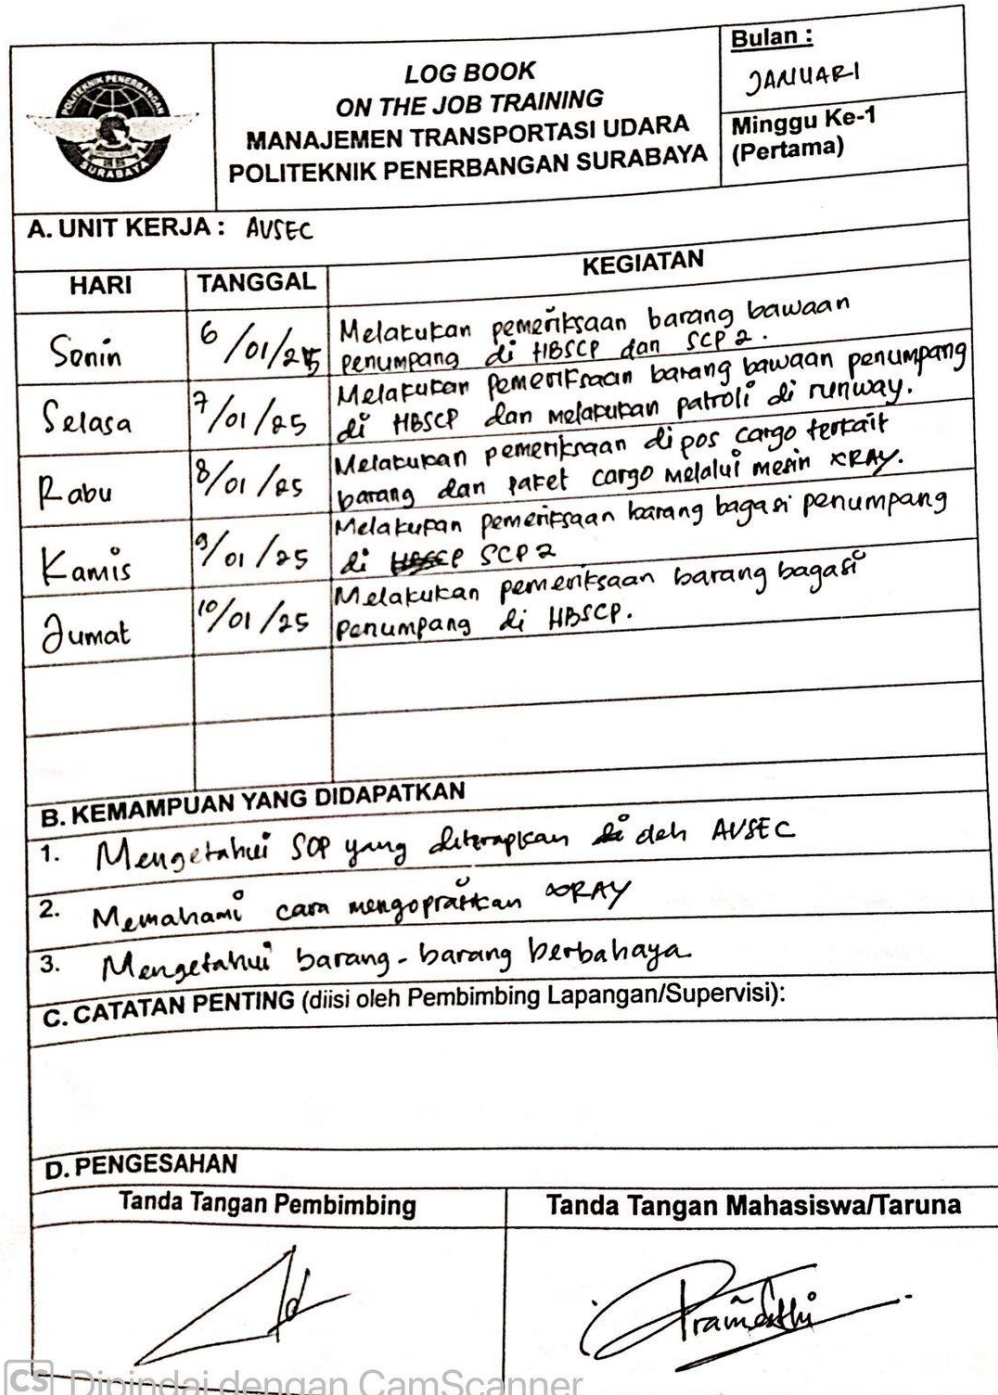 POLITEKNIK PENERBANGAN
SURABAYA
LOG BOOK
ON THE JOB TRAINING
MANAJEMEN TRANSPORTASI UDARA
POLITEKNIK PENERBANGAN SURABAYA
Bulan :
JANUARI
Minggu Ke-1
(Pertama)
A. UNIT KERJA : AVSEC
HARI TANGGAL KEGIATAN
Senin 6/01/25 Melakukan pemeriksaan barang bawaan
penumpang di HBSCP dan SCP 2.
Selasa 7/01/25 Melakukan pemeriksaan barang bawaan penumpang
di HBSCP dan melakukan patroli di runway.
Rabu 8/01/25 Melakukan pemeriksaan di pos cargo terkait
barang dan paket cargo melalui mesin XRAY.
Kamis 9/01/25 Melakukan pemeriksaan barang bagasi penumpang
di SCP 2
Jumat 10/01/25 Melakukan pemeriksaan barang bagasi
penumpang di HBSCP.
B. KEMAMPUAN YANG DIDAPATKAN
1. Mengetahui SOP yang diterapkan oleh AVSEC
2. Memahami cara mengopratikan XRAY
3. Mengetahui barang-barang berbahaya
C. CATATAN PENTING (diisi oleh Pembimbing Lapangan/Supervisi):
D. PENGESAHAN
Tanda Tangan Pembimbing Tanda Tangan Mahasiswa/Taruna
CS Dipindai dengan CamScanner